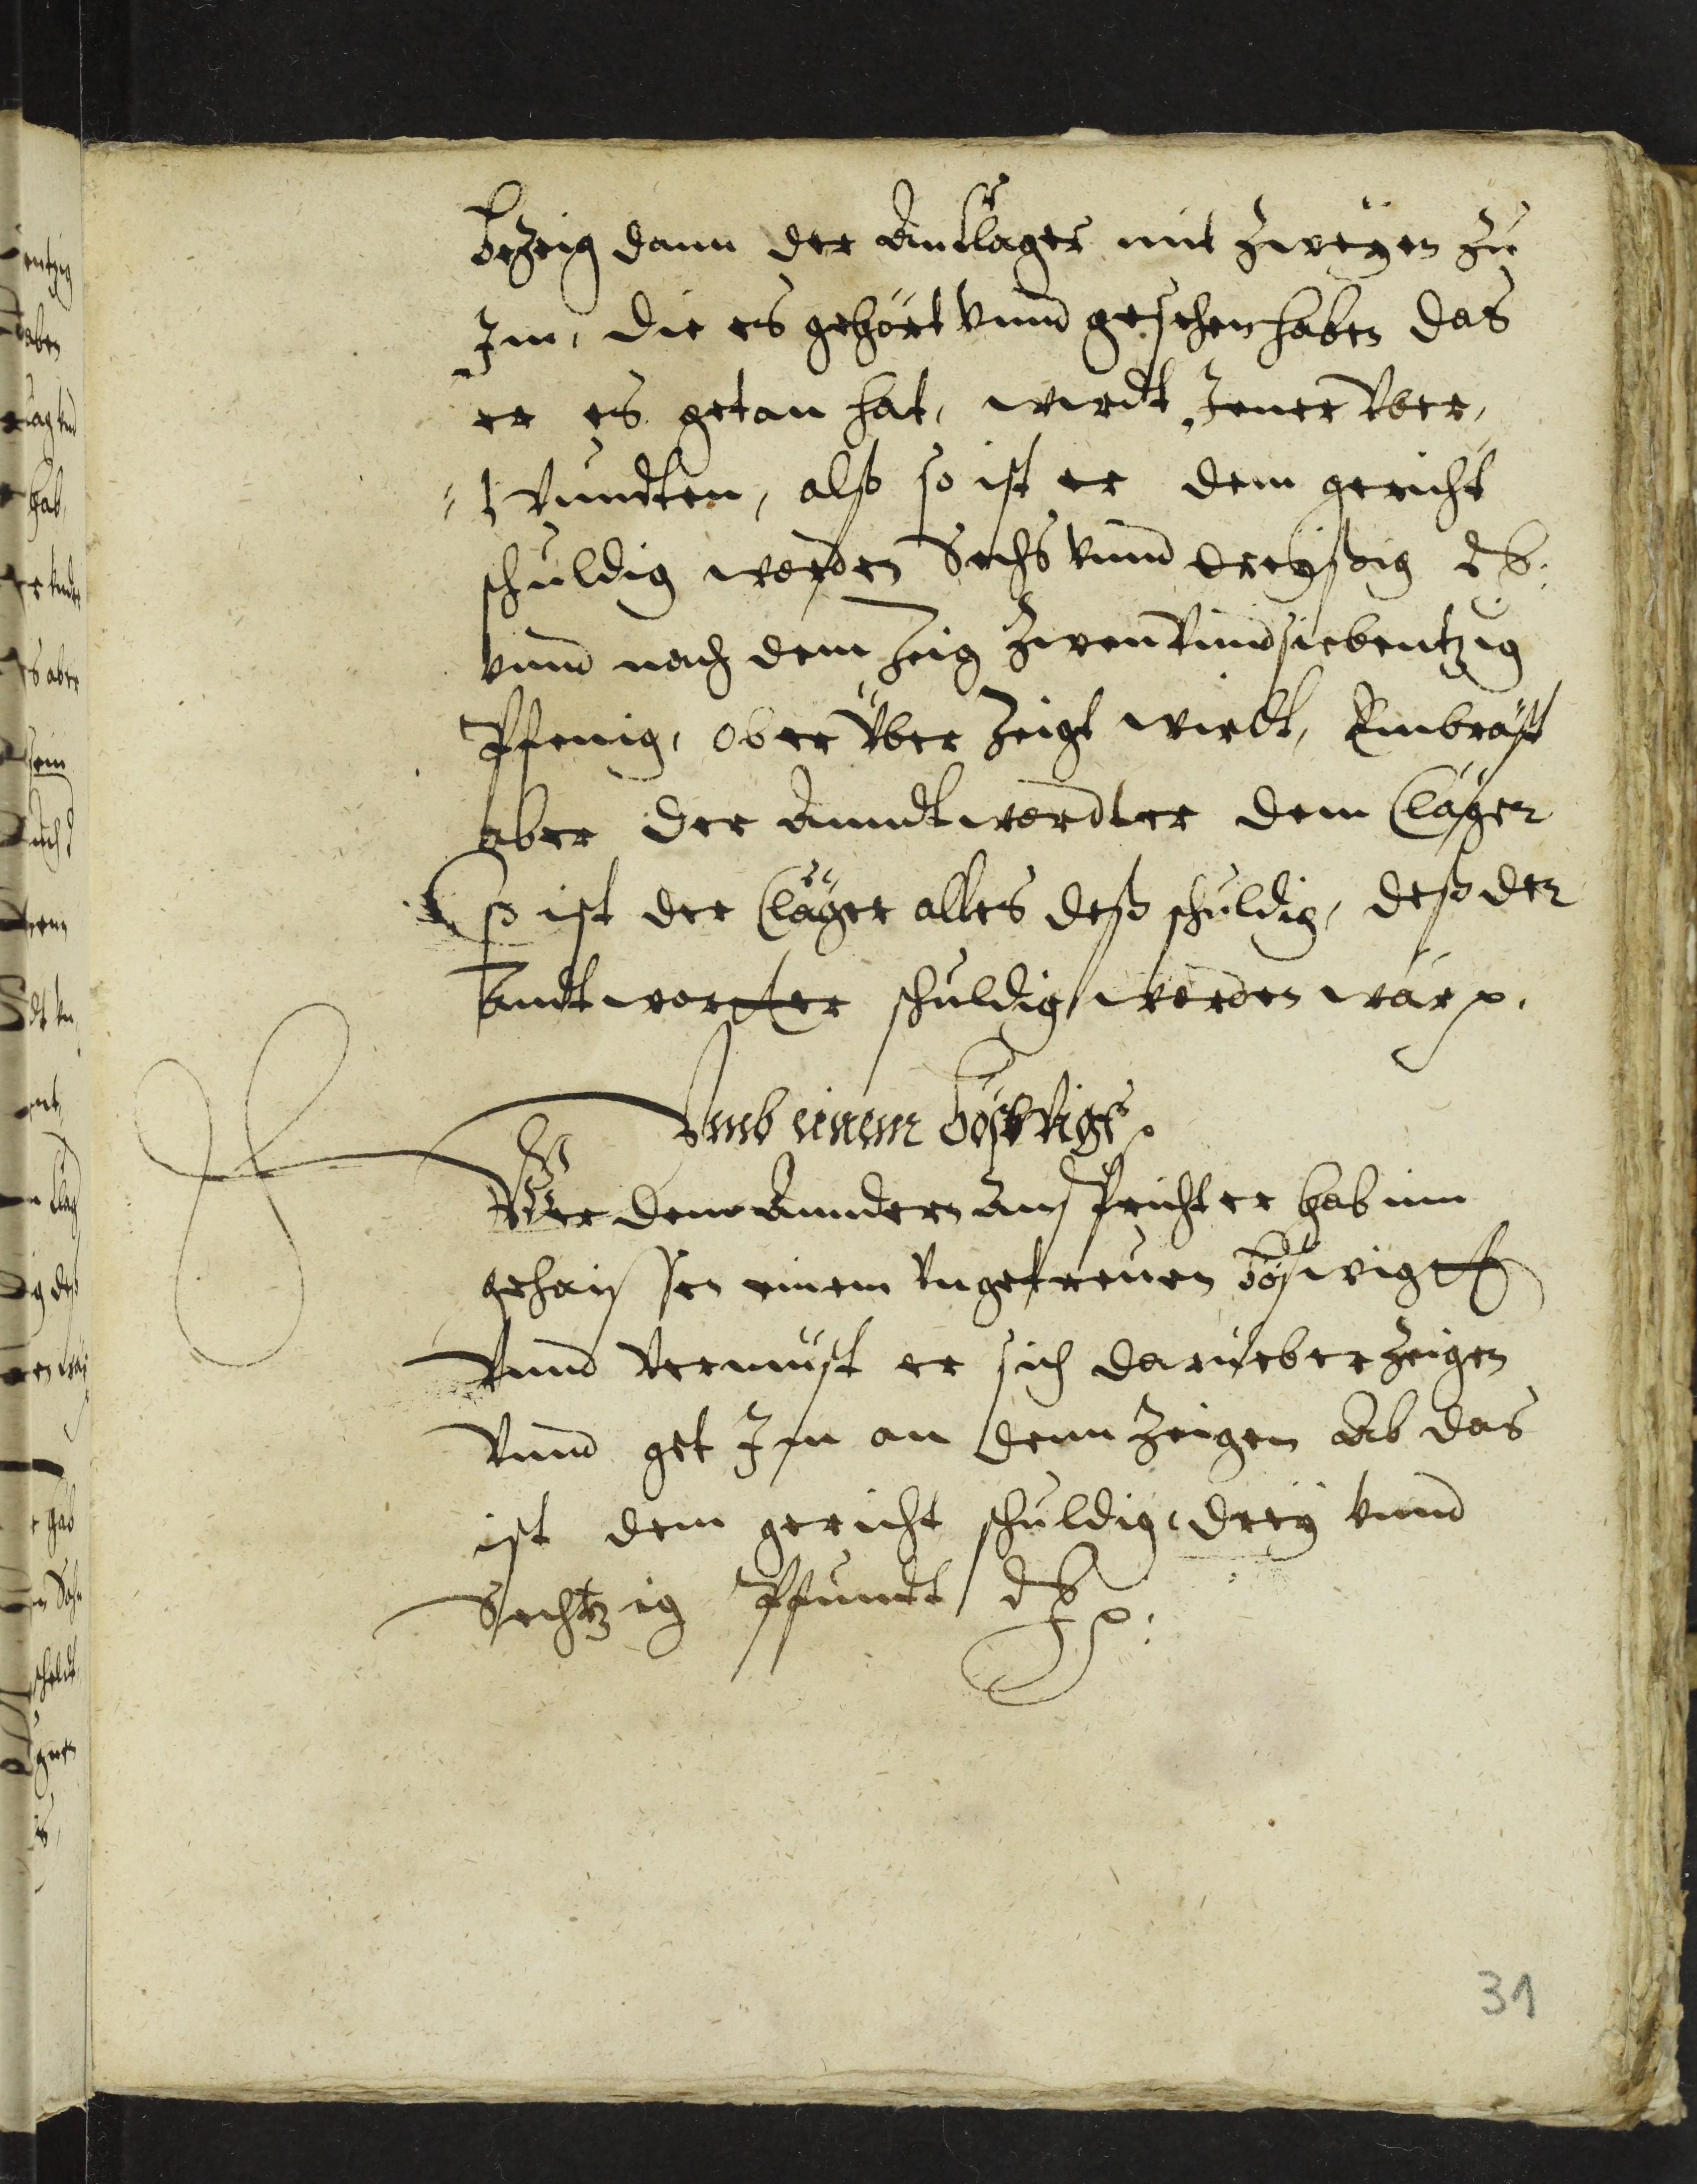 Bezeig dann der Anclager mit zweyen zu
Im, die es gehört vnnd gesehen haben das
er es getan hat, wirdt Jener Vber,
wundten, also so ist er dem gericht
schuldig worden Sechs vnnd dreyssig d.
vnnd nach dem Zeig zwen Vnnd siebentzig
Pfenig, ob er Vber Zeigt wirdt, Embrast
aber der Anndtwordter dem Clager
So ist der Clager alles deß schuldig, deß der
Anndtworter schuldig worden wär.
Vmb einem Bößwigt
Wer dem Anndern Ansspricht er hab im
gehaissen einem Vngetreuen bößwigt
Vnnd Vermüst er sich darüeber Zeigen
Vnnd get Im an denn Zeigen Ab das
ist dem gericht schuldig, drey vnnd
Sechtzig Pfundt d.
31